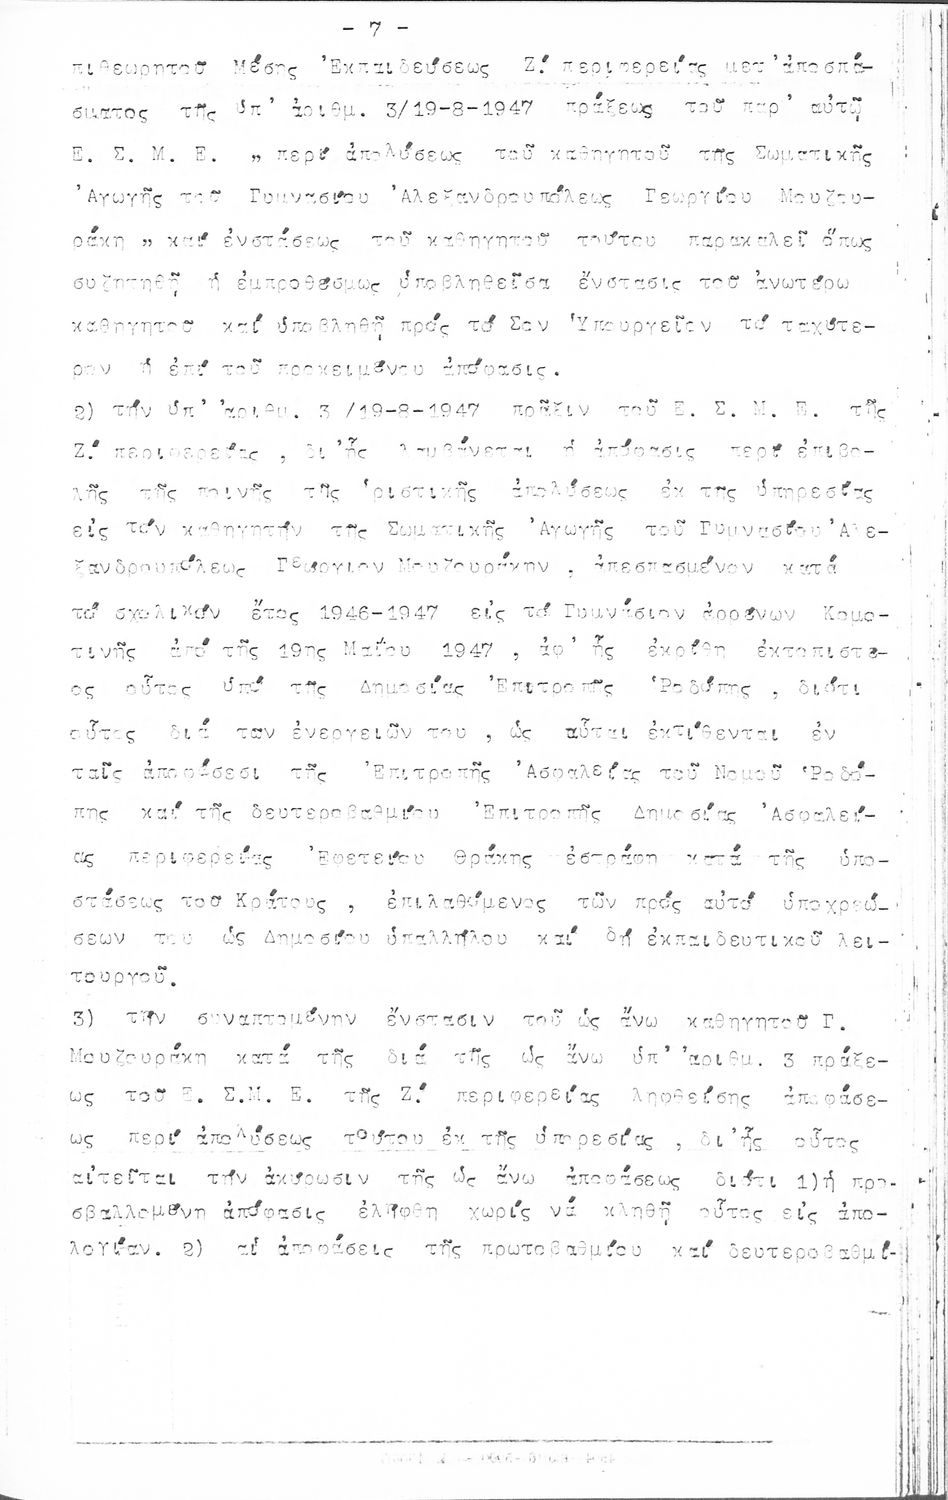 - 7 -
πιθεωρητοῦ Μέσης Ἐκπαιδεύσεως Ζ.΄ περιφερείας μετ'ἀποσπά-
σματος τῆς ὑπ' ἀριθμ. 3/19-8-1947 πράξεως τοῦ παρ' αὐτῷ
Ε. Σ. Μ. Ε. „ περί ἀπολύσεως τοῦ καθηγητοῦ τῆς Σωματικῆς
Ἀγωγῆς τοῦ Γυμνασίου Ἀλεξανδρουπόλεως Γεωργίου Μουζου-
ράκη „ καί ἐνστάσεως τοῦ καθηγητοῦ τούτου παρακαλεῖ ὅπως
συζητηθῇ ἡ ἐμπροθέσμως ὑποβληθεῖσα ἔνστασις τοῦ ἀνωτέρω
καθηγητοῦ καί ὑποβληθῇ πρός τό Σον Ὑπουργεῖον τό ταχύτε-
ρον ἡ ἐπί τοῦ προκειμένου ἀπόφασις.
2) τήν ὑπ' ἀριθμ. 3 /19-8-1947 πρᾶξιν τοῦ Ε. Σ. Μ. Ε. τῆς
Ζ.΄ περιφερείας , δι'ἧς λαμβάνεται ἡ ἀπόφασις περί ἐπιβο-
λῆς τῆς ποινῆς τῆς ὁριστικῆς ἀπολύσεως ἐκ της ὑπηρεσίας
εἰς τόν καθηγητήν τῆς Σωματικῆς Ἀγωγῆς τοῦ Γυμνασίου Ἀλε-
ξανδρουπόλεως Γεώργιον Μουζουράκην , ἀπεσπασμένον κατά
τό σχολικόν ἔτος 1946-1947 εἰς τό Γυμνάσιον ἀρρένων Κομο-
τινῆς ἀπό τῆς 19ης Μαΐου 1947 , ἀφ' ἧς ἐκρίθη ἐκτοπιστέ-
ος οὗτος ὑπό τῆς Δημοσίας Ἐπιτροπῆς Ῥοδόπης , διότι
οὗτος διά των ἐνεργειῶν του , ὡς αὗται ἐκτίθενται ἐν
ταῖς ἀποφάσεσι τῆς Ἐπιτροπῆς Ἀσφαλείας τοῦ Νομοῦ Ῥοδό-
πης καί τῆς δευτεροβαθμίου Ἐπιτροπῆς Δημοσίας Ἀσφαλεί-
ας περιφερείας Ἐφετείου Θράκης ἐστράφη κατά τῆς ὑπο-
στάσεως τοῦ Κράτους , ἐπιλαθόμενος τῶν πρός αὐτό ὑποχρεώ-
σεων του ὡς Δημοσίου ὑπαλλήλου καί δή ἐκπαιδευτικοῦ λει-
τουργοῦ.
3) τήν συναπτομένην ἔνστασιν τοῦ ὡς ἄνω καθηγητοῦ Γ.
Μουζουράκη κατά τῆς διά τῆς ὡς ἄνω ὑπ' ἀριθμ. 3 πράξε-
ως τοῦ Ε. Σ.Μ. Ε. τῆς Ζ.΄ περιφερείας ληφθείσης ἀποφάσε-
ως περί ἀπολύσεως τούτου ἐκ τῆς ὑπηρεσίας , δι'ἧς οὗτος
αἰτεῖται τήν ἀκύρωσιν τῆς ὡς ἄνω ἀποφάσεως διότι 1)ἡ προ-
σβαλλομένη ἀπόφασις ἐλήφθη χωρίς νά κληθῇ οὗτος εἰς ἀπο-
λογίαν. 2) αἱ ἀποφάσεις τῆς πρωτοβαθμίου καί δευτεροβαθμί-